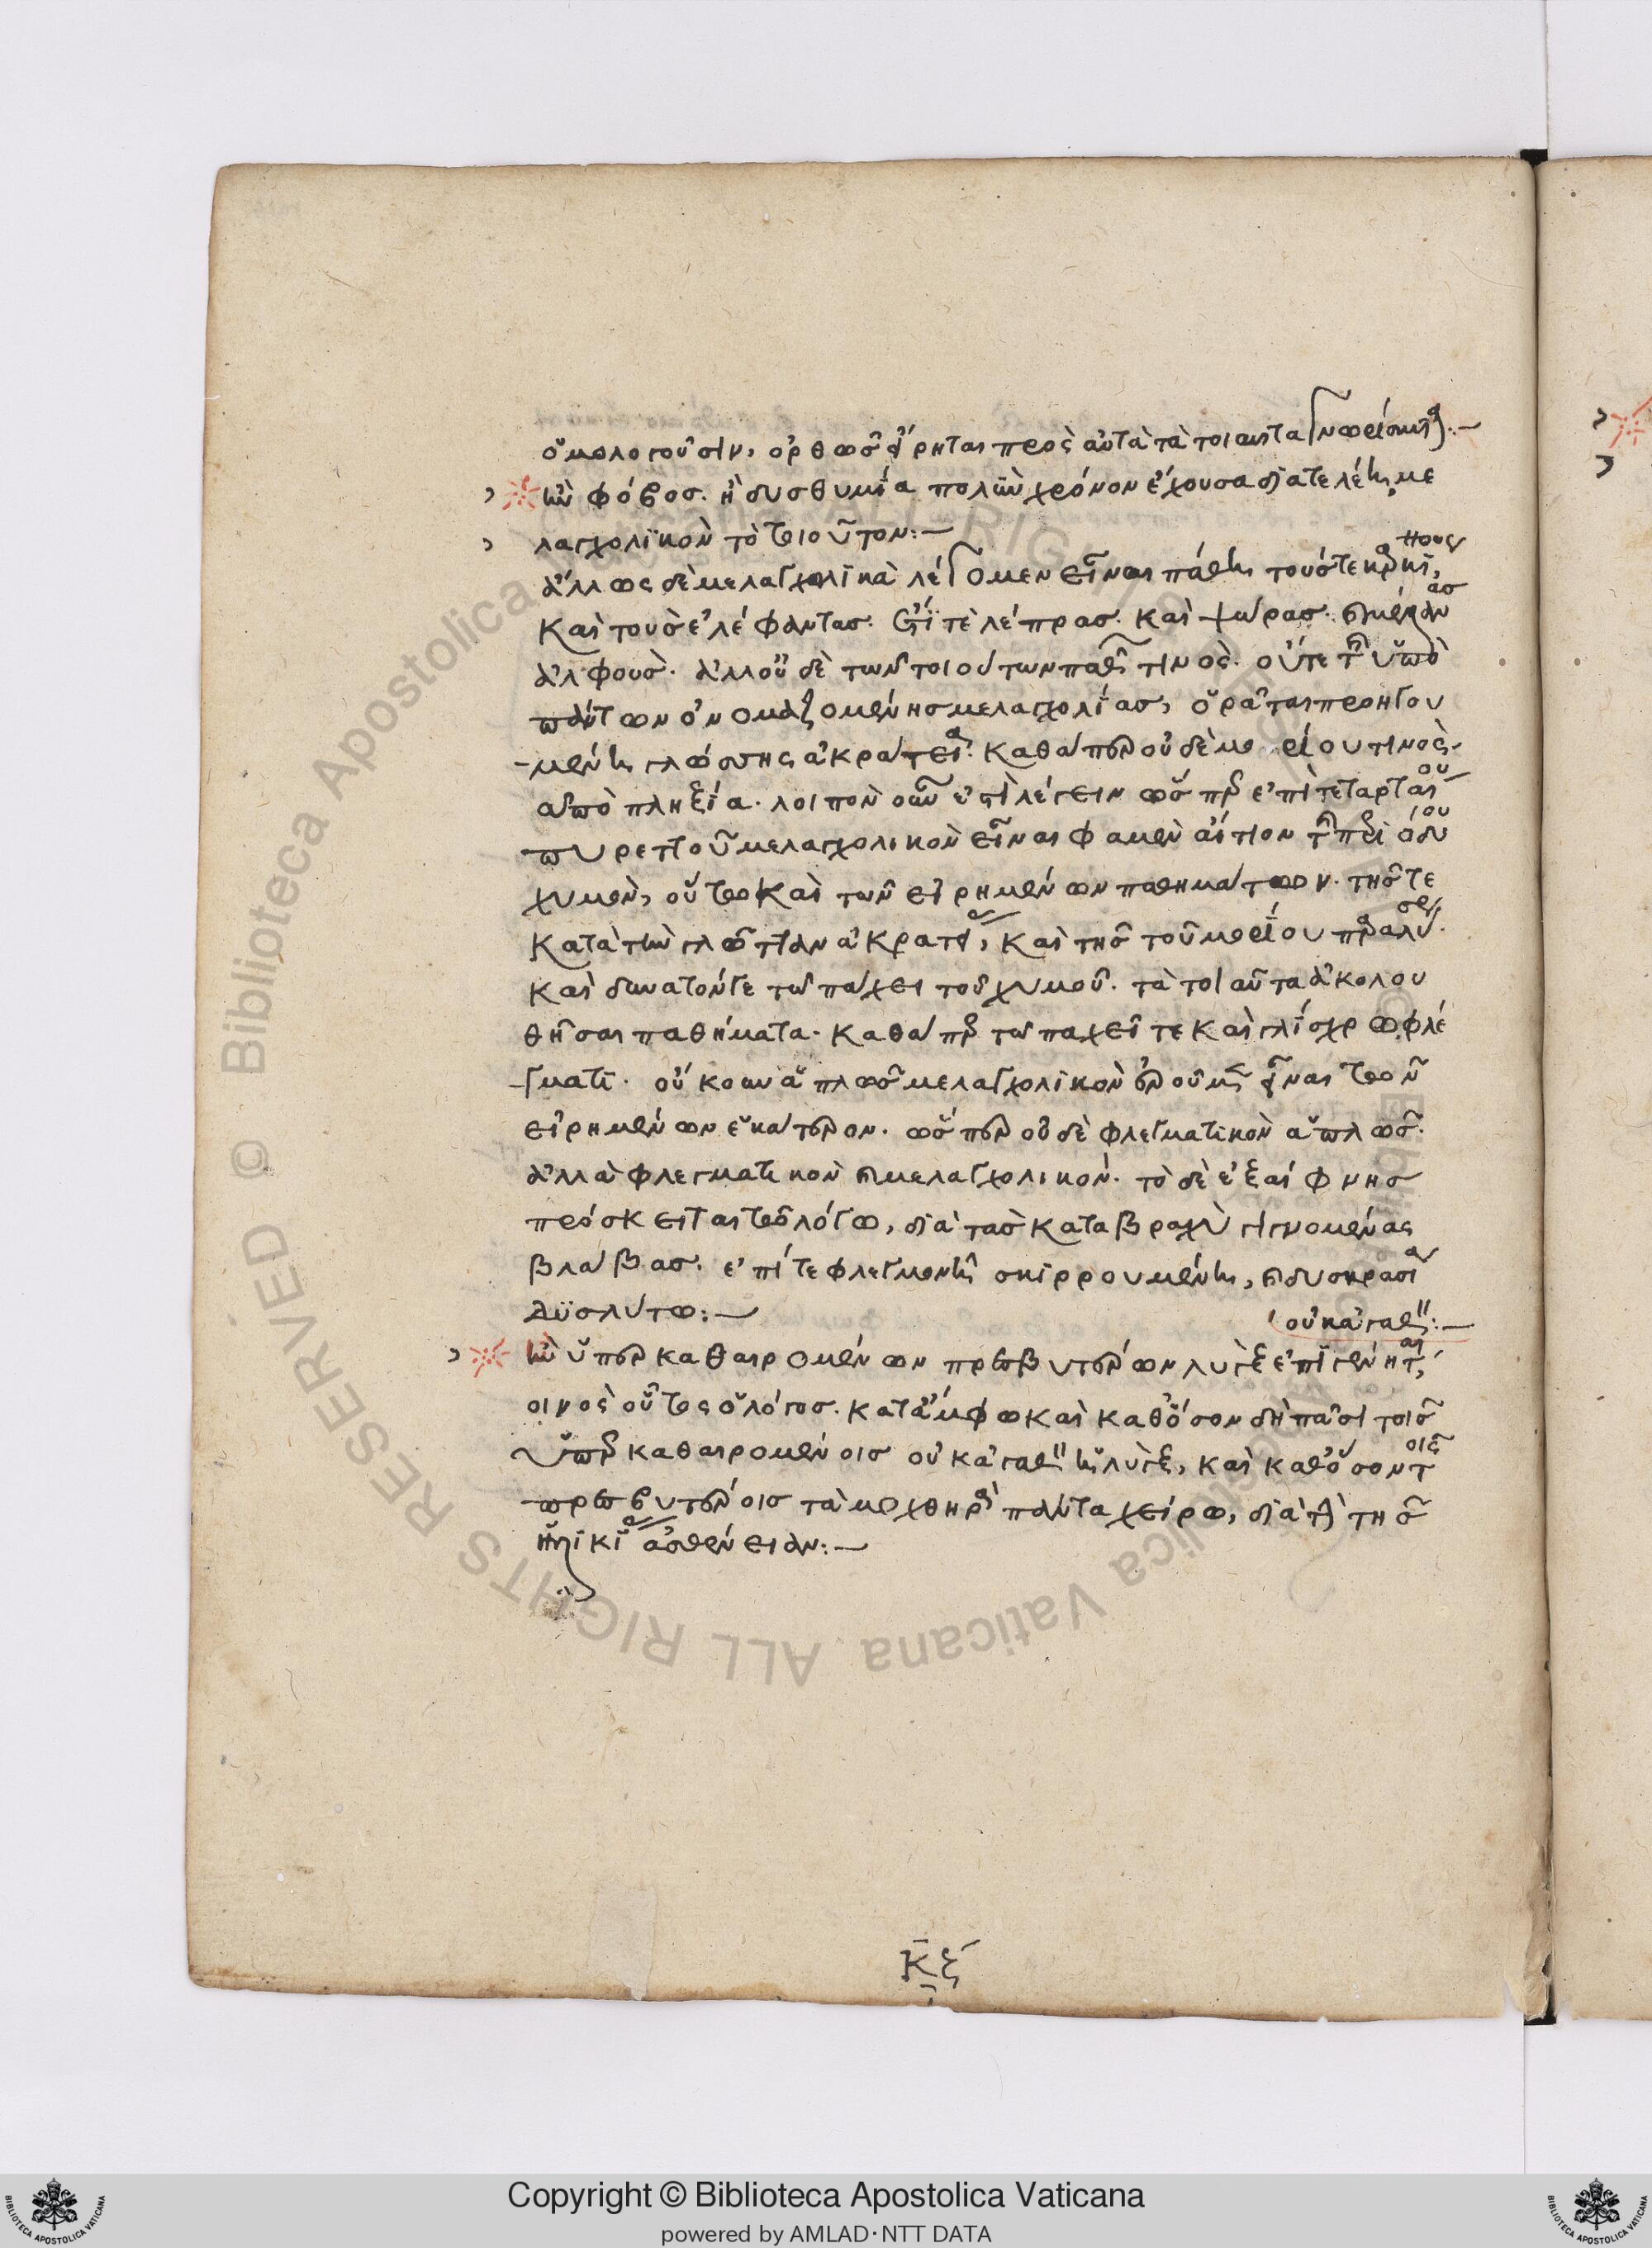 ὁμολογοῦσιν, ὀρθῶς εἴρηται πρὸς αὐτὰ τὰ τοιαῦτα γνωρίσματα:—
ἢν φόβος. ἢ δυσθυμίη πολὺν χρόνον ἔχουσα διατελέῃ, με
λαγχολικὸν τὸ τοιοῦτον:—
ἄλλως δὲ μελαγχολικὰ λέγομεν εἶναι πάθη τούς τε καρκίνους,
καὶ τοὺς ἐλέφαντας. ἔτι τε λέπρας. καὶ ψώρας. καὶ μέλανας
ἀλφούς. ἄλλου δὲ τῶν τοιούτων παθῶν τινός. οὔτε τῆς ὑπὸ
πάντων ὀνομαζομένης μελαγχολίας, ὁρᾶται προηγου
μένη γλώττης ἀκράτεια. καθάπερ οὐδὲ μορίου τινὸς
ἀποπληξία. λοιπὸν οὖν ἐστὶ λέγειν ὥσπερ ἐπὶ τεταρταίου
πυρετοῦ μελαγχολικὸν εἶναι φαμὲν αἴτιον τῆς περιόδου
χυμὸν, οὕτω καὶ τῶν εἰρημένων παθημάτων. τῆς τε
κατὰ τὴν γλῶτταν ἀκρατείας, καὶ τῆς τοῦ μορίου παραλύσεως.
καὶ δυνατόν γε τῷ πάχει τοῦ χυμοῦ. τὰ τοιαῦτα ἀκολου
θῆσαι παθήματα. καθάπερ τῷ παχεῖ τε καὶ γλίσχρῳ φλέ
γματι. οὔκουν ἁπλῶς μελαγχολικὸν ἐροῦμεν εἶναι τῶν
εἰρημένων ἑκάτερον. ὥσπερ οὐδὲ φλεγματικὸν ἁπλῶς.
ἀλλὰ φλεγματικὸν καὶ μελαγχολικόν. τὸ δὲ ἐξαίφνης
πρόσκειται τῷ λόγῳ, διὰ τὰς κατὰ βραχὺ γιγνομένας
βλάβας. ἐπί τε φλεγμονῇ σκιρρουμένῃ, καὶ δυσκρασίᾳ
δυσλύτῳ:—
οὐκ ἀγαθόν:—
ἢν ὑπερκαθαιρομένων πρεσβυτέρων λὺγξ ἐπιγένηται,
οινος οὗτος ὁ λόγος. κατ' ἄμφω καὶ καθόσον δὴ πᾶσι τοῖς
ὑπερκαθαιρομένοις οὐκ ἀγαθὸν ἡ λὺγξ, καὶ καθόσον τοῖς
πρεσβυτέροις τὰ μοχθηρὰ πάντα χείρω, διὰ τὴν τῆς
ἡλικίας ἀσθένειαν:—
κξ
Copyright © Biblioteca Apostolica Vaticana
powered by AMLAD·NTT DATA
© Biblioteca Apostolica Vaticana ALL RIGHTS RESERVED